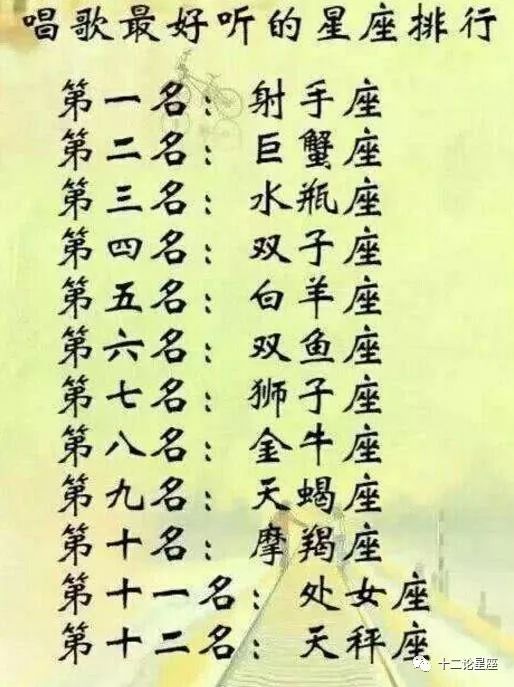 唱歌最好听的星座排行
第一名：射手座
第二名：巨蟹座
第三名：水瓶座
第四名：双子座
第五名：白羊座
第六名：双鱼座
第七名：狮子座
第八名：金牛座
第九名：天蝎座
第十名：摩羯座
第十一名：处女座
第十二名：天秤座
十二论星座